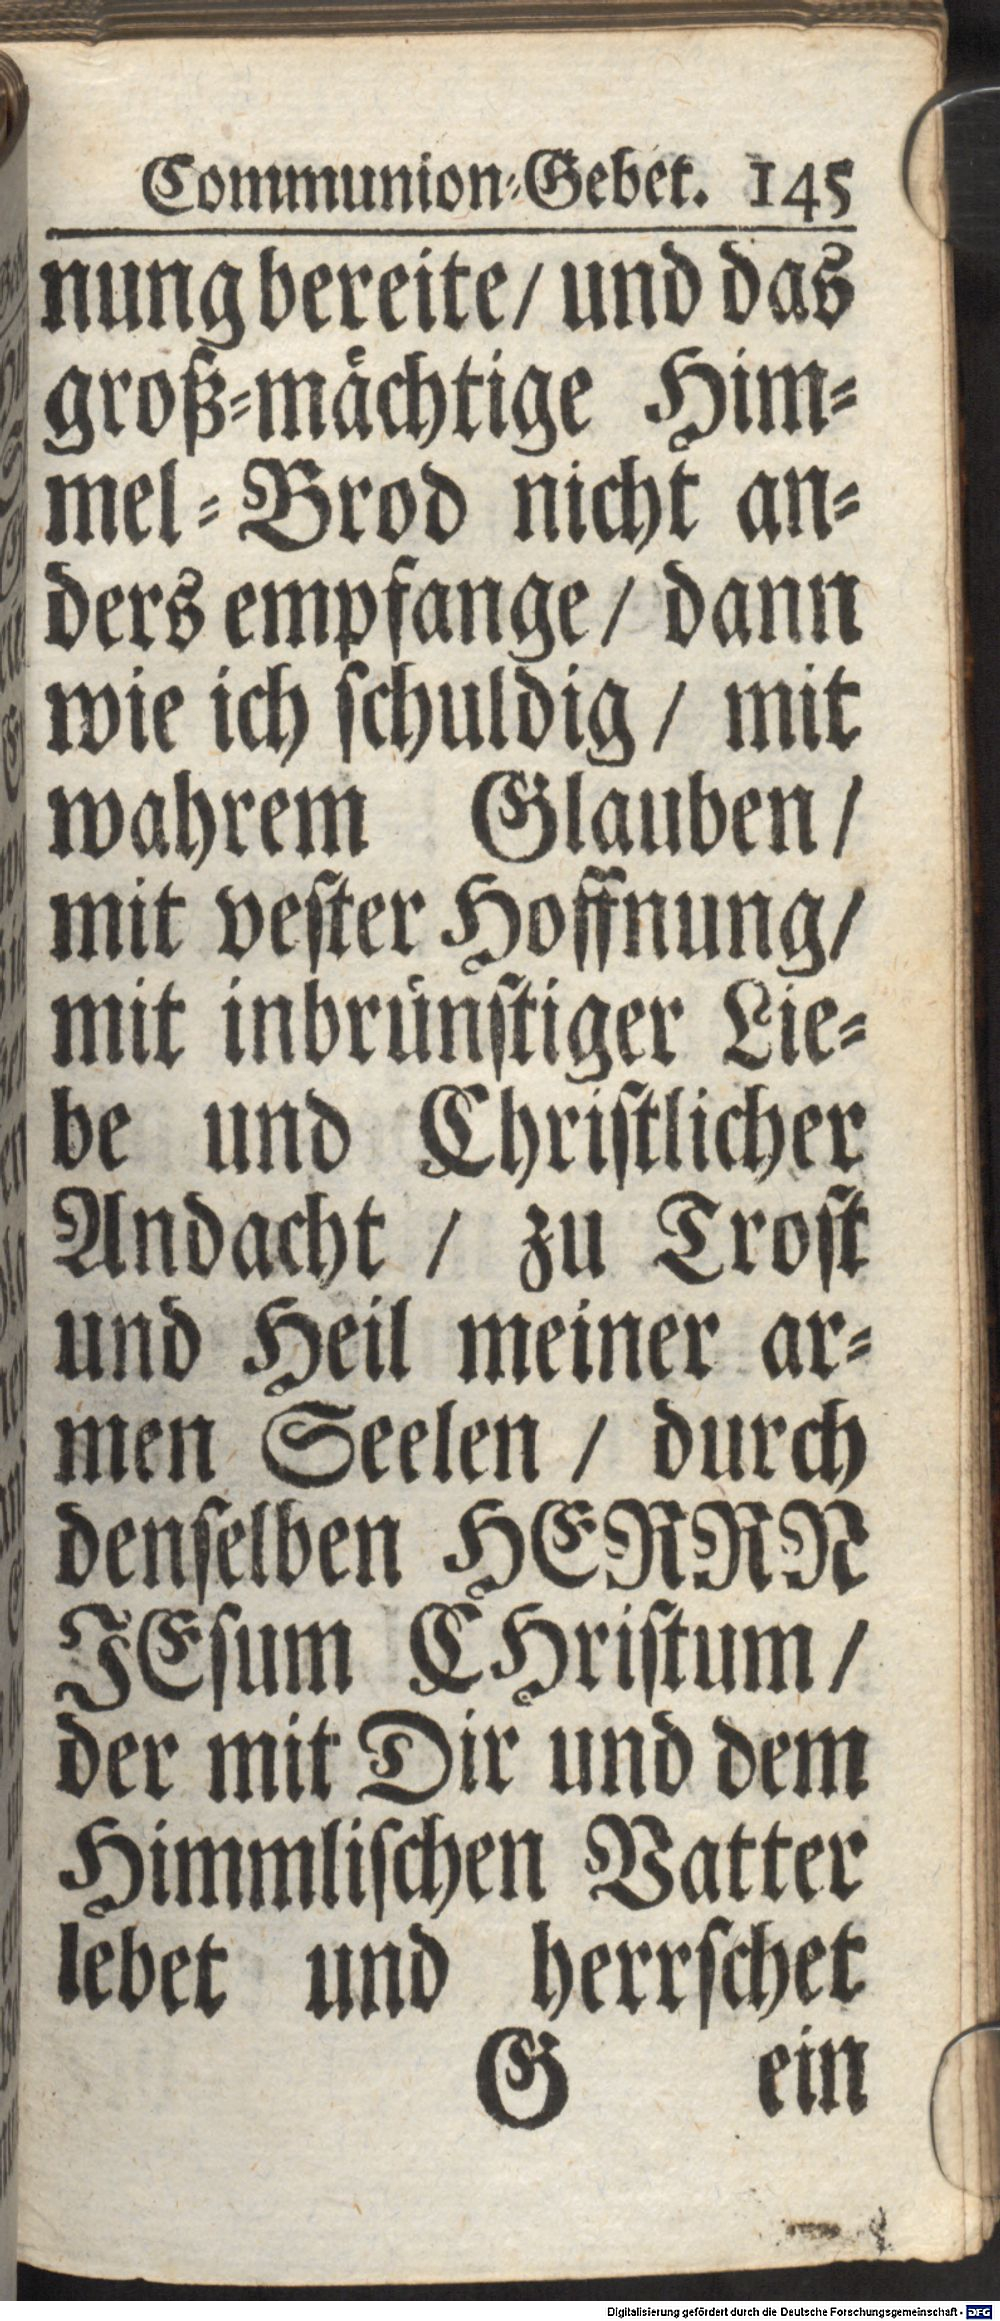 Communion-Gebet. 145
nung bereite/ und das
groß-maͤchtige Him-
mel-Brod nicht an-
ders empfange/ dann
wie ich ſchuldig/ mit
wahrem Glauben/
mit veſter Hoffnung/
mit inbruͤnſtiger Lie-
be und Chriſtlicher
Andacht / zu Troſt
und Heil meiner ar-
men Seelen / durch
denſelben HERRN
JEſum CHriſtum/
der mit Dir und dem
Himmliſchen Vatter
lebet und herrſchet
G ein
Digitalisierung gefördert durch die Deutsche Forschungsgemeinschaft - DFG